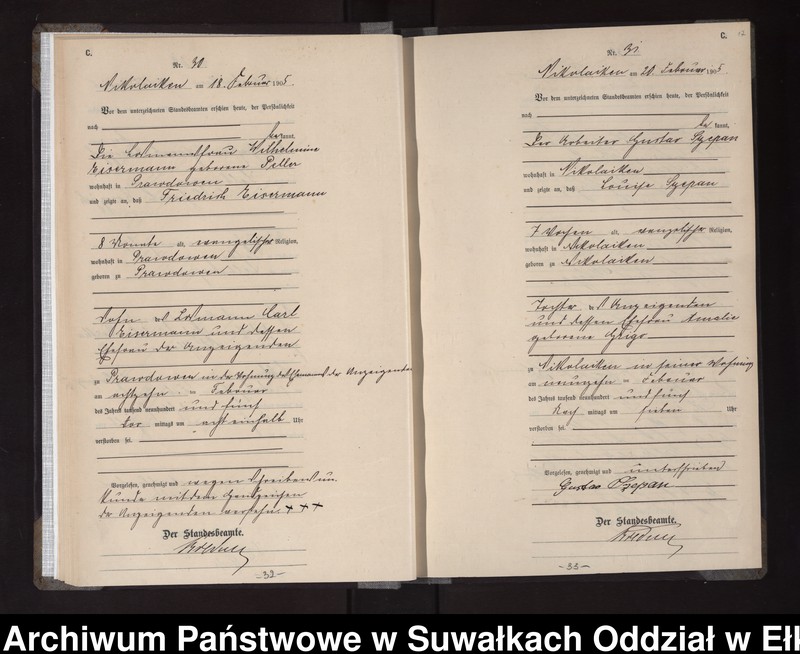 C.
Nr. 30.
Nikolaiken am 18. Februar 1905.
Vor dem unterzeichneten Standesbeamten erschien heute, der Persönlichkeit
nach
bekannt.
Die Losmannsfrau Wilhelmine
Eisermann geborene Peller
wohnhaft in Prawdowen
und zeigte an, daß Friedrich Eisermann
8 Monate alt, evangelischer Religion,
wohnhaft in Prawdowen
geboren zu Prawdowen
Sohn des Losmann Carl
Eisermann und dessen
Ehefrau der Anzeigenden
zu Prawdowen in der Wohnung des Ehemanns der Anzeigenden
am achtzehn ten Februar
des Jahres tausend neunhundert und fünf
Vor mittags um acht einhalb Uhr
verstorben sei.
Vorgelesen, genehmigt und wegen Schreibensun-
kunde mit dem Handzeichen
der Anzeigenden versehen + + +
Der Standesbeamte.
-32-
C.
Nr. 31.
Nikolaiken am 20. Februar 1905
Vor dem unterzeichneten Standesbeamten erschien heute, der Persönlichkeit
nach
bekannt.
Der Arbeiter Gustav Szepan
wohnhaft in Nikolaiken
und zeigte an, daß Louise Szepan
7 Wochen alt, evangelischer Religion,
wohnhaft in Nikolaiken
geboren zu Nikolaiken
Tochter des Anzeigenden
und dessen Ehefrau Amalie
geborene Grigo
zu Nikolaiken in seiner Wohnung
am neunzehn ten Februar
des Jahres tausend neunhundert und fünf
Nach mittags um sieben Uhr
verstorben sei.
Vorgelesen, genehmigt und unterschrieben
Gustav Szepan
Der Standesbeamte.
-33-
Archiwum Państwowe w Suwałkach Oddział w Ełk